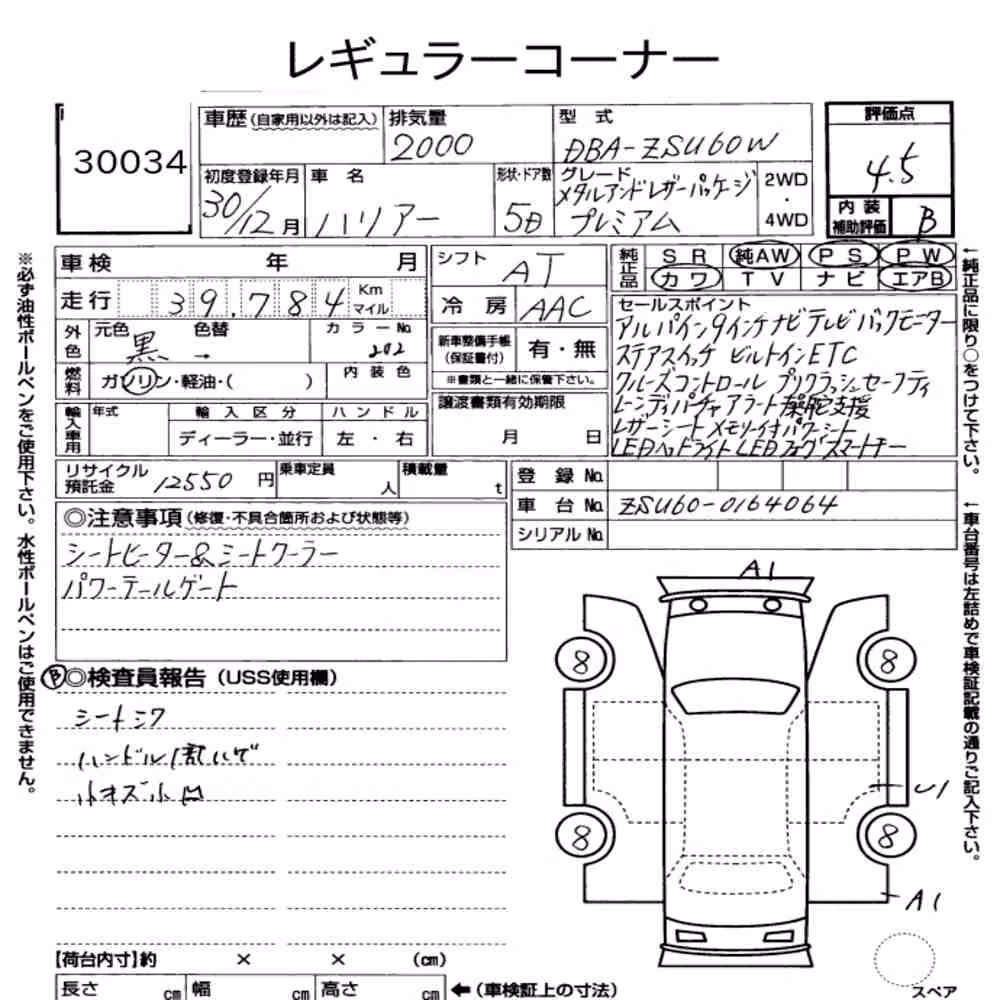 レギュラーコーナー
30034
車歴 (自家用以外は記入)
排気量
2000
型 式
DBA-ZSU60W
評価点
4.5
内装補助評価
B
初度登録年月
30/12月
車 名
ハリアー
形状・ドア数
5D
グレード
メタルアンドレザーパッケージ
プレミアム
2WD
・
4WD
車検 年 月
走行 39,784 Km マイル
外色
元色 色替
黒 →
カラーNo.
202
燃料
ガソリン・軽油・( )
内装色
輸入車用
年式
輸入区分
ディーラー・並行
ハンドル
左・右
シフト
AT
冷房
AAC
新車整備手帳(保証書付)
有・無
※書類と一緒に保管下さい。
譲渡書類有効期限
月 日
純正品
SR 純AW PS PW
カワ TV ナビ エアB
セールスポイント
アルパイン9インチナビテレビバックモニター
ステアスイッチ ビルトインETC
クルーズコントロール プリクラッシュセーフティ
レーンディパーチャアラート操舵支援
レザーシート メモリー付パワーシート
LEDヘッドライト LEDフォグ スマートキー
リサイクル預託金
12550円
乗車定員
人
積載量
t
登録No.
車台No. ZSU60-0164064
シリアルNo.
◎注意事項 (修復・不具合箇所および状態等)
シートヒーター&シートクーラー
パワーテールゲート
B ◎検査員報告 (USS使用欄)
シートシワ
ハンドル
小キズ小凹
A1
8
8
8
8
U1
A1
スペア
【荷台内寸】約 × × (cm)
長さ cm 幅 cm 高さ cm ←(車検証上の寸法)
※必ず油性ボールペンをご使用下さい。水性ボールペンはご使用できません。
←純正品に限り○をつけて下さい。
←車台番号は左詰めで車検証記載の通りご記入下さい。